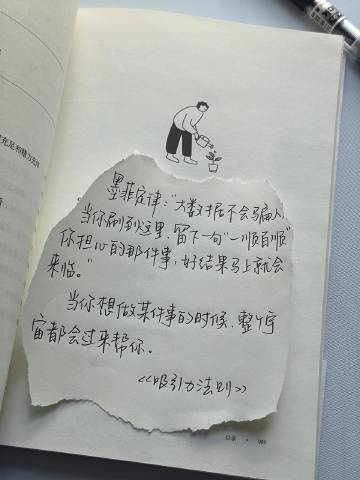 墨菲定律："大数据不会骗人,
当你刷到这里,留下一句"一顺百顺"
你担心的那件事,好结果马上就会
来临。"
当你想做某件事的时候,整个宇
宙都会过来帮你。
<<吸引力法则>>